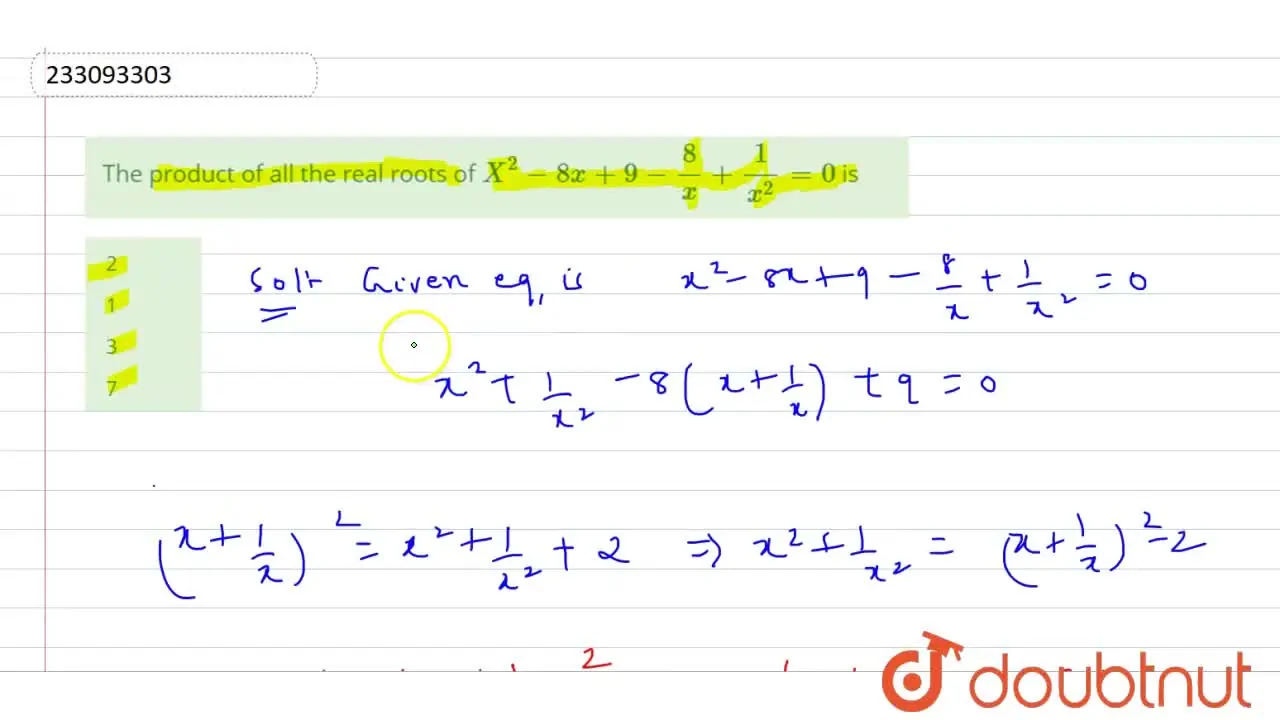 233093303
The product of all the real roots of X² − 8x + 9 − 8/x + 1/x² = 0 is
2
1
3
7
Solt Given eq, is x² − 8x + 9 − 8/x + 1/x² = 0
x² + 1/x² − 8(x + 1/x) + 9 = 0
(x + 1/x)² = x² + 1/x² + 2 ⇒ x² + 1/x² = (x + 1/x)² − 2
2
doubtnut